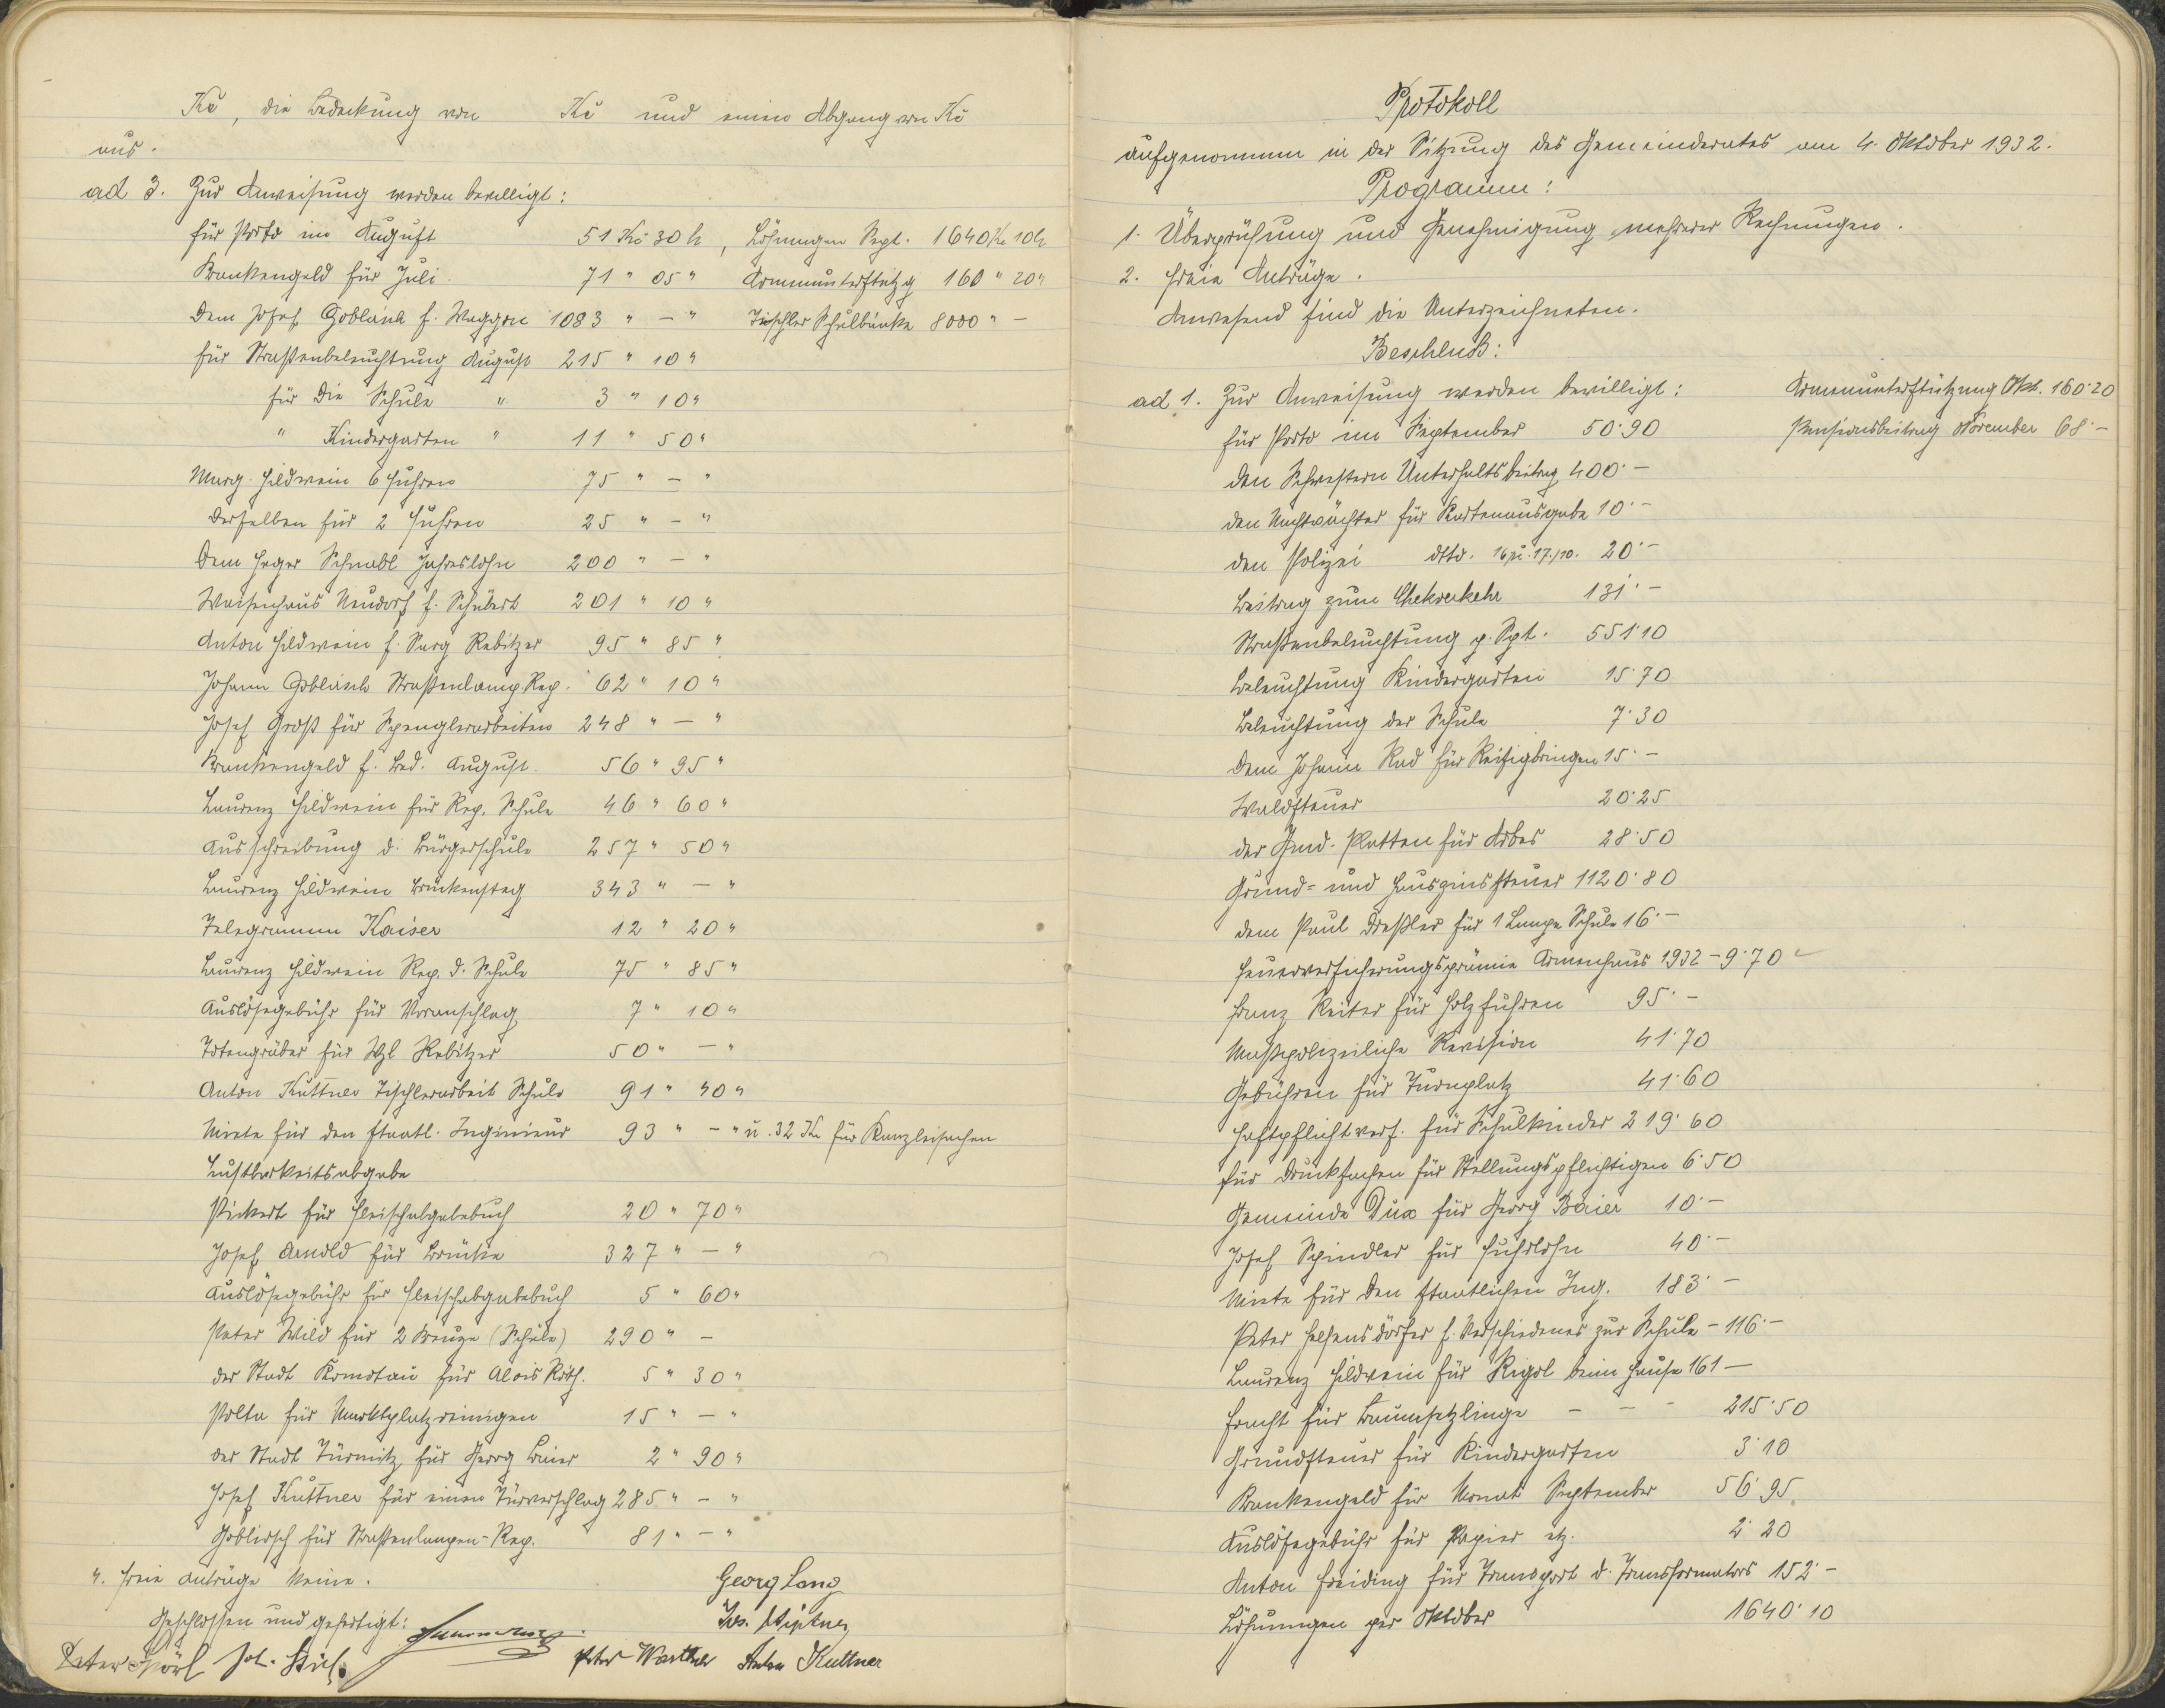 Kč, die Bedeckung von Kč und einen Abgang von Kč
aus.
ad 3. Zur Anweisung werden bewilligt:
für Porto im August 51 Kč 30 h, Löhnungen Sept. 1640 Kč 10 h
Krankengeld für Juli 71 " 05 " Armenunterstützg 160 " 20 "
Dem Josef f. Waggon 1083 " – " Tischler Schulbänke 8000 " –
für Straßenbeleuchtung August 215 " 10 "
für die Schule " 3 " 10 "
" Kindergarten " 11 " 50 "
Marg. Hildwein 6 Fuhren 75 " – "
Derselben für 2 Fuhren 25 " – "
Dem Heger Schnabl Jahreslohn 200 " – "
Waisenhaus Neudorf f. Schubert 201 " 10 "
Anton Hildwein f. Sarg Rebitzer 95 " 85 "
Johann Goblirsch Straßenlamp. Rep. 62 " 10 "
Josef Groß für Spenglerarbeiten 248 " – "
Krankengeld f. Bed. August 56 " 95 "
Laurenz Hildwein für Rep. Schule 46 " 60 "
Ausschreibung d. Bürgerschule 257 " 50 "
Laurenz Hildwein Brückensteg 343 " – "
Telegramm Kaiser 12 " 20 "
Laurenz Hildwein Rep. d. Schule 75 " 85 "
Auslösegebühr für Voranschlag 7 " 10 "
Totengräber für Rebitzer 50 " – "
Anton Kuttner Tischlerarbeit Schule 91 " 40 "
Miete für den staatl. Ingenieur 93 " – " u. 32 Kč für Kanzleisachen
Lustbarkeitsabgabe
Pickert für Fleischabgabebuch 20 " 70 "
Josef Arnold für Brücke 327 " – "
Auslösegebühr für Fleischabgabebuch 5 " 60 "
Peter Wild für 2 Kreuze (Schule) 290 " –
der Stadt Komotau für Alois Röth. 5 " 30 "
Polta für Marktplatzreinigen 15 " – "
der Stadt Türmitz für Georg Baier 2 " 90 "
Josef Kuttner für einen Türverschlag 285 " – "
Goblirsch für Straßenlampen-Rep. 81 " – "
4. Freie Anträge keine. Georg Lang
Geschlossen und gefertigt:
Peter Wartner Anton Kuttner
Protokoll
aufgenommen in der Sitzung des Gemeinderates am 4. Oktober 1932.
Programm:
1. Überprüfung und Genehmigung mehrerer Rechnungen.
2. Freie Anträge.
Anwesend sind die Unterzeichneten.
Beschluß:
ad 1. Zur Anweisung werden bewilligt: Armenunterstützung Okt. 160·20
für Porto im September 50·90 Pensionsbeitrag November 68·–
den Schwestern Unterhaltsbeitrag 400·–
den Nachtwächter für Kartenausgabe 10·–
den Polizei dtto. 16 u. 17./10. 20·–
Beitrag zum Chekverkehr 131·–
Straßenbeleuchtung p. Spt. 551·10
Beleuchtung Kindergarten 15·70
Beleuchtung der Schule 7·30
Dem Johann Rad für Reisigbringen 15·–
Waldsteuer 20·25
der Gmd. Platten für Arbes 28·50
Grund- und Hauszinssteuer 1120·80
dem Paul Dreßler für 1 Lampe Schule 16·–
Feuerversicherungsprämie Armenhaus 1932 – 9·70
Franz Reiter für Holzfuhren 95·–
Maßpolizeiliche Revision 41·70
Gebühren für Turnplatz 41·60
Haftpflichtvers. für Schulkinder 219·60
für Drucksachen für Stellungspflichtigen 6·50
Gemeinde Dux für Georg Baier 10·–
Josef Spindler für Fuhrlohn 40·–
Miete für den staatlichen Ing. 183·–
Peter f. Verschiedenes zur Schule – 116·–
Laurenz Hildwein für Rigol beim Hause 161 –
Fracht für Baumsetzlinge – – – 215·50
Grundsteuer für Kindergarten 3·10
Krankengeld für Monat September 56·95
Auslösegebühr für Papier etz. 2·20
Anton Freiding für Transport d. Transformators 152·–
Löhnungen per Oktober 1640·10